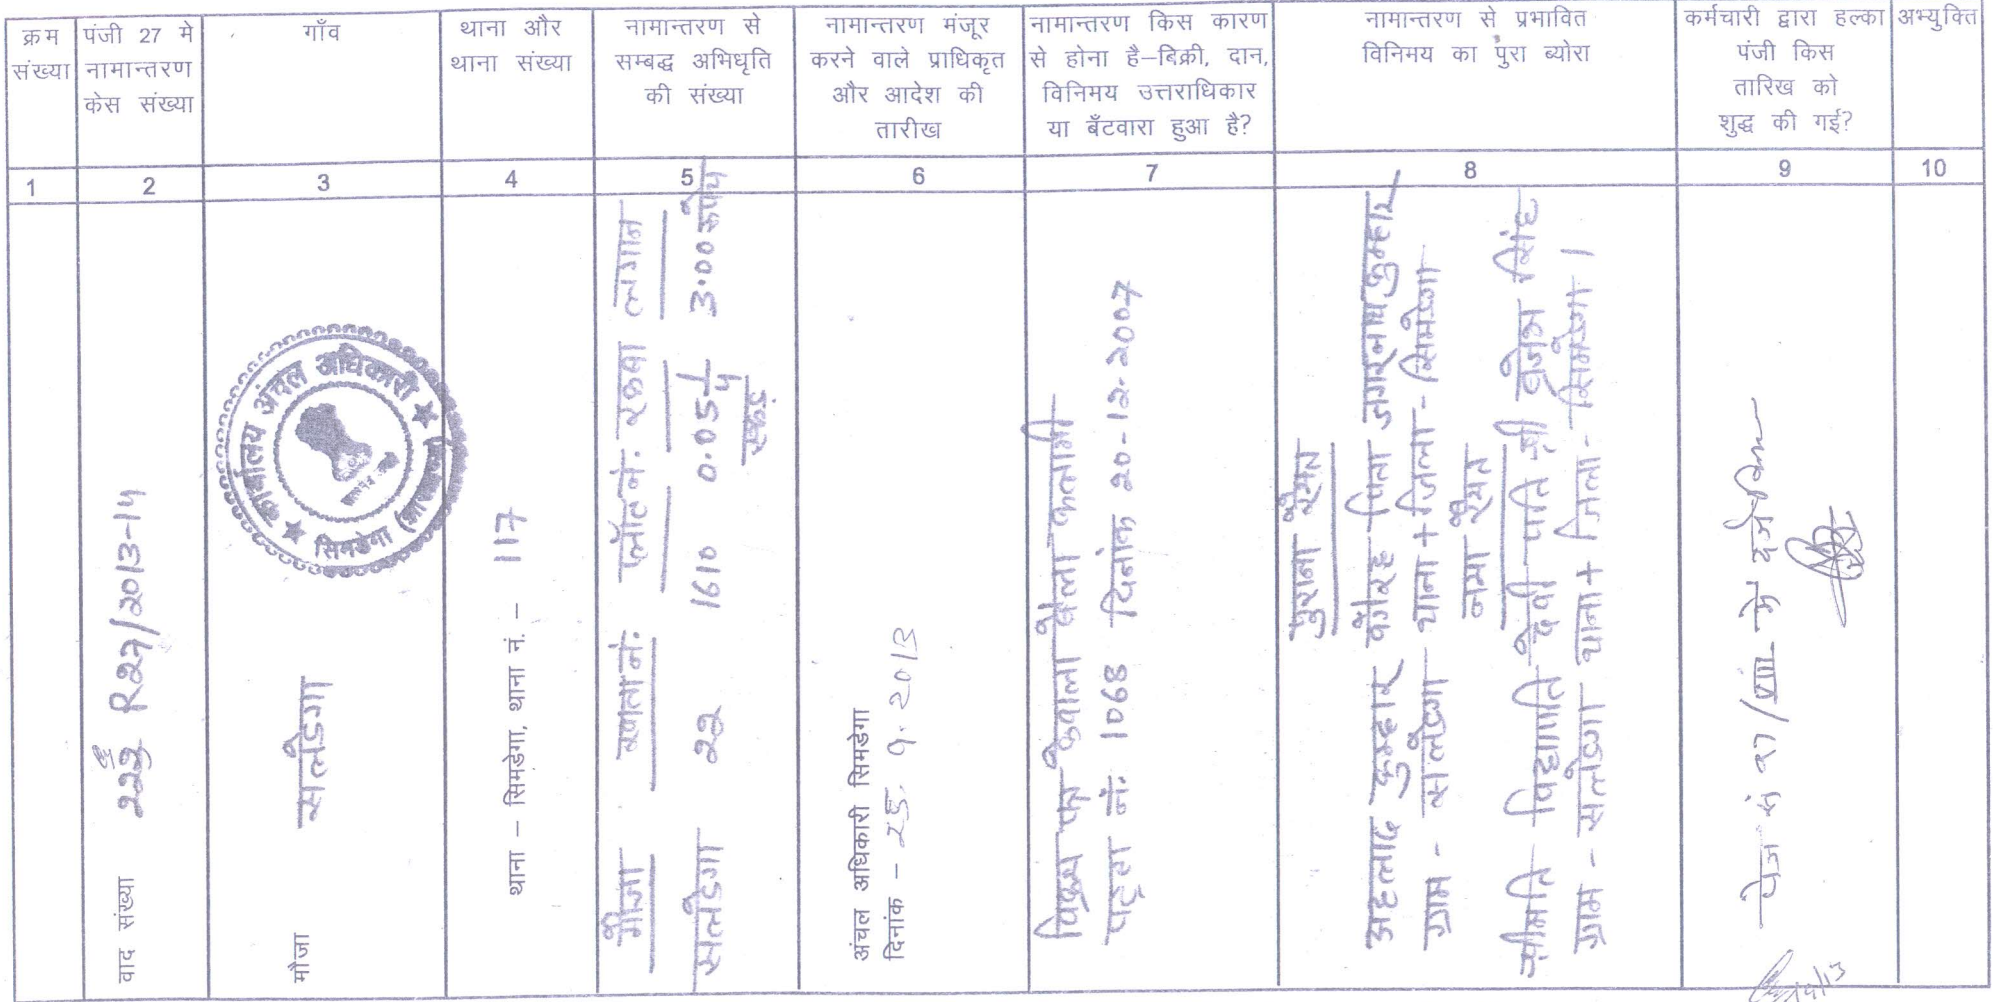 क्रम
संख्या
पंजी 27 मे
नामान्तरण
केस संख्या
गाँव
थाना और
थाना संख्या
नामान्तरण से
सम्बद्ध अभिधृति
की संख्या
नामान्तरण मंजूर
करने वाले प्राधिकृत
और आदेश की
तारीख
नामान्तरण किस कारण
से होना है–बिक्री, दान,
विनिमय उत्तराधिकार
या बँटवारा हुआ है?
नामान्तरण से प्रभावित
विनिमय का पुरा ब्योरा
कर्मचारी द्वारा हल्का
पंजी किस
तारिख को
शुद्ध की गई?
अभ्युक्ति
1
2
3
4
5
6
7
8
9
10
वाद संख्या R27/2013-14
मौजा सलडेगा
कार्यालय अंचल अधिकारी
सिमडेगा
थाना – सिमडेगा, थाना नं. – 117
मौजा खाता नं. प्लॉट नं. रकबा लगान
सलडेगा 22 1610 0.05 1/4 3.00 रूपये
एकड़
अंचल अधिकारी सिमडेगा
दिनांक – 25.9.2013
केवाला
पट्टा नं. 1068 दिनांक 20-12-2007
पुराना रैयत
कुम्हार वगैरह पिता जगरनाथ कुम्हार
ग्राम - सलडेगा थाना + जिला - सिमडेगा
नया रैयत
श्रीमति देवी पति श्री सिंह
ग्राम - सलडेगा थाना + जिला - सिमडेगा।
पेज सं 27/VIII में दर्ज किया